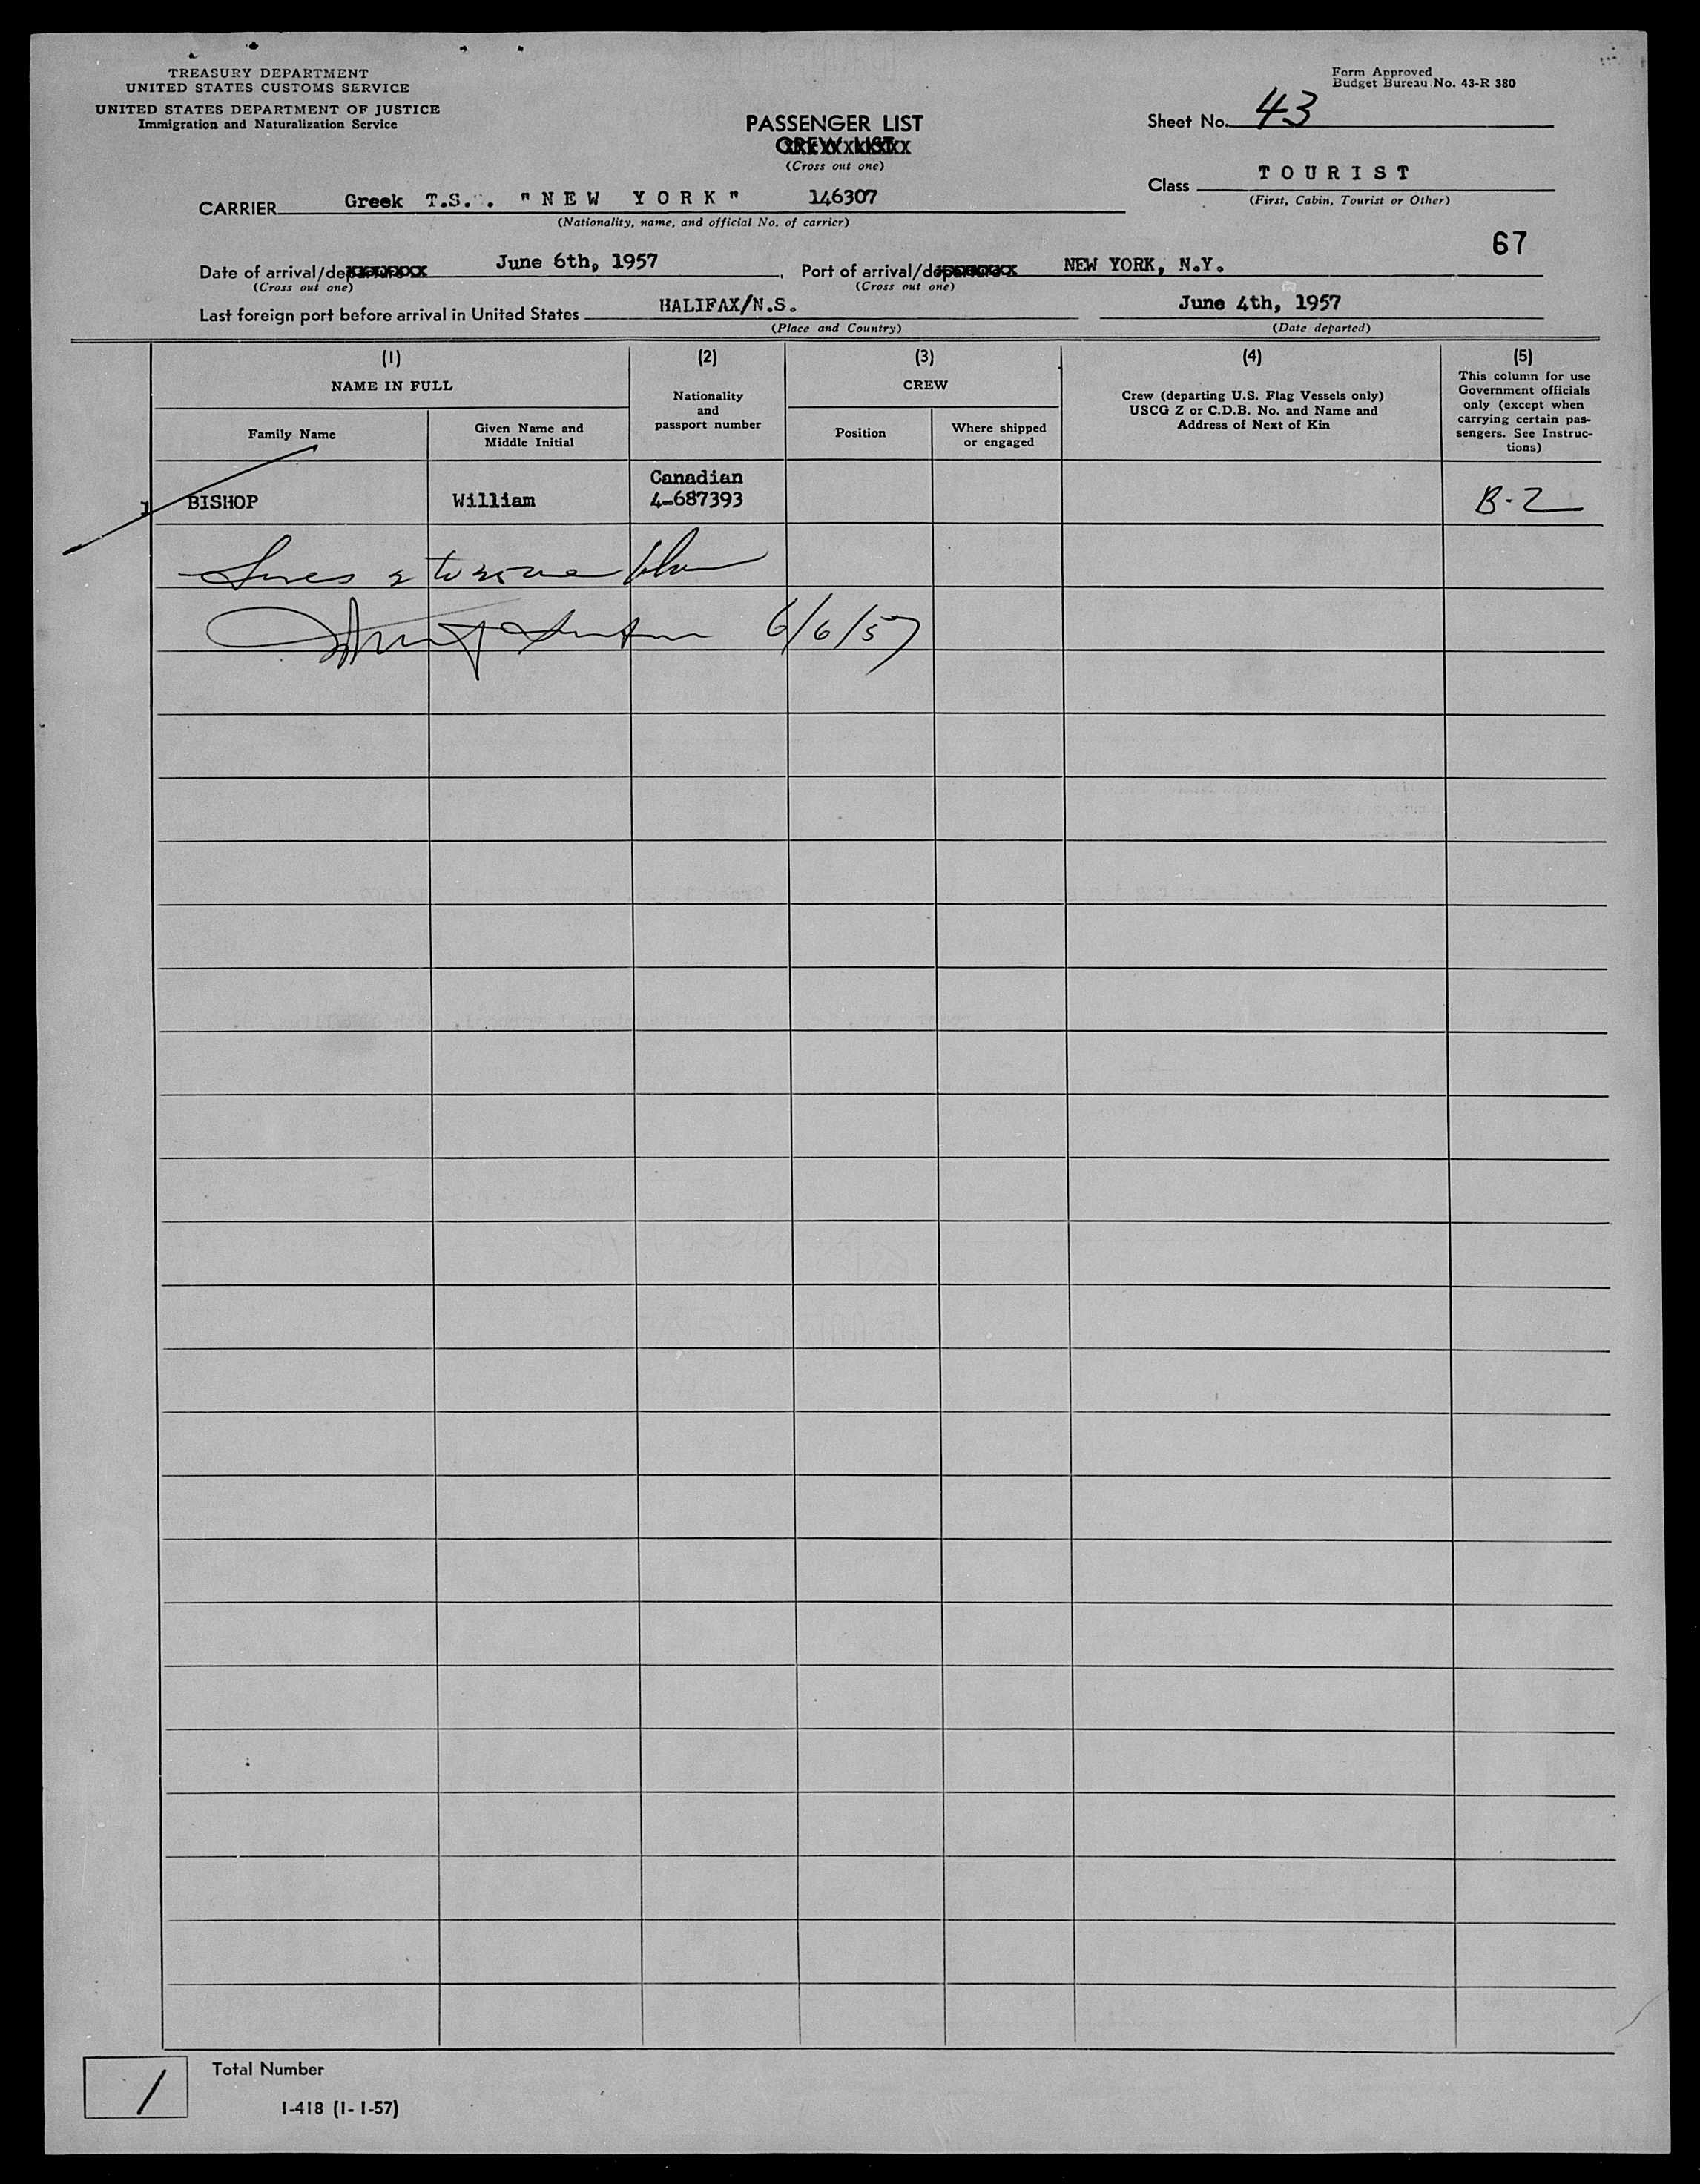 TREASURY DEPARTMENT
UNITED STATES CUSTOMS SERVICE
UNITED STATES DEPARTMENT OF JUSTICE
Immigration and Naturalization Service
Form Approved
Budget Bureau No. 43-R 380
PASSENGER LIST
CREW LIST
(Cross out one)
Sheet No. 43
Class TOURIST
(First, Cabin, Tourist or Other)
CARRIER Greek T.S. "NEW YORK" 146307
(Nationality, name, and official No. of carrier)
67
Date of arrival/departure June 6th, 1957, Port of arrival/departure NEW YORK, N.Y.
(Cross out one) (Cross out one)
Last foreign port before arrival in United States HALIFAX/N.S. June 4th, 1957
(Place and Country) (Date departed)
(1) (2) (3) (4) (5)
NAME IN FULL
Family Name
Given Name and
Middle Initial
Nationality
and
passport number
CREW
Position
Where shipped
or engaged
Crew (departing U.S. Flag Vessels only)
USCG Z or C.D.B. No. and Name and
Address of Next of Kin
This column for use
Government officials
only (except when
carrying certain pas-
sengers. See Instruc-
tions)
1 BISHOP William Canadian
4-687393 B-2
6/6/57
1 Total Number
I-418 (1-1-57)